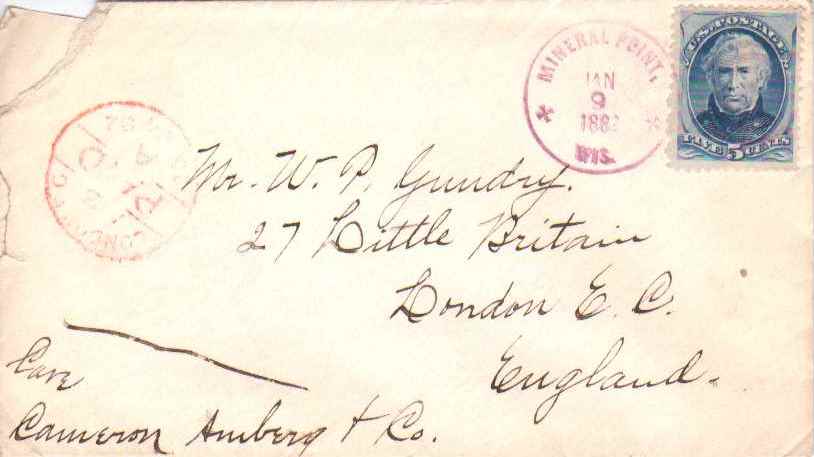 U.S. POSTAGE
FIVE 5 CENTS
MINERAL POINT,
JAN
9
WIS.
LONDON
PAID
Mr. W. P. Gundry.
27 Little Britain
London E. C.
England.
Care
Cameron Amberg & Co.